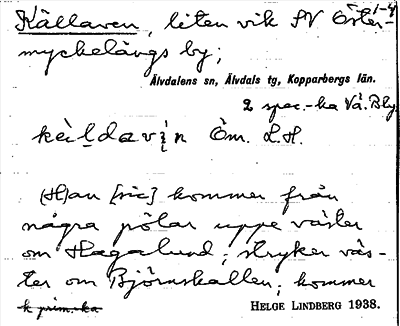 Källaven, liten vik SV Öster-
myckelängs by;
Älvdalens sn, Älvdals tg, Kopparbergs län.
2 spec.-ka Vä. Bly
Öm. L.H.
(H)an [sic] kommer från
några pölar uppe väster
om Hagalund; stryker väs-
ter om Björnskallen; kommer
k prim. ka
HELGE LINDBERG 1938.